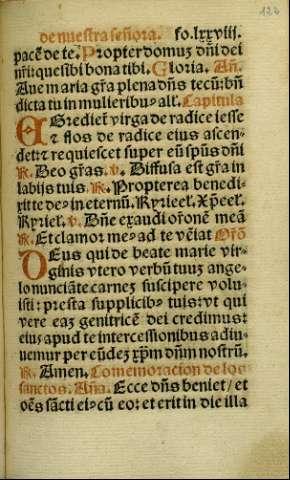 de nuestra señora. fo.lxxviij.
pacē de te. Propter domuz dñi dei
nr̄i: quesibi bona tibi. Gloria. Añ.
Aue maria gr̄a plena dñs tecū: bñ
dicta tu in mulieribꝰ all'. Capitula
EGrediet̄ virga de radice iesse
⁊ flos de radice eius ascen-
det: ⁊ requiescet super eū spūs dñi
R. Deo gr̄as. v. Diffusa est gr̄a in
labijs tuis. R. Propterea benedi-
xit te deꝰ in eternū. Kyrieel. Xp̄eel.
Kyriel'. v. Dñe exaudi or̄onē meā
R. Et clamor meꝰ ad te vēiat Or̄o
DEus qui de beate marie vir-
ginis vtero verbū tuuz ange-
lo nunciāte carnez suscipere volu-
isti: presta supplicibꝰ tuis: vt qui
vere eaz genitricē dei credimus:
eiuz apud te intercessionibus adiu-
uemur per eūdez xp̄m dñm nostrū.
R. Amen. Comemoracion de los
sanctos. Aña. Ecce dñs veniet / et
oēs sācti eiꝰ cū eo: et erit in die illa